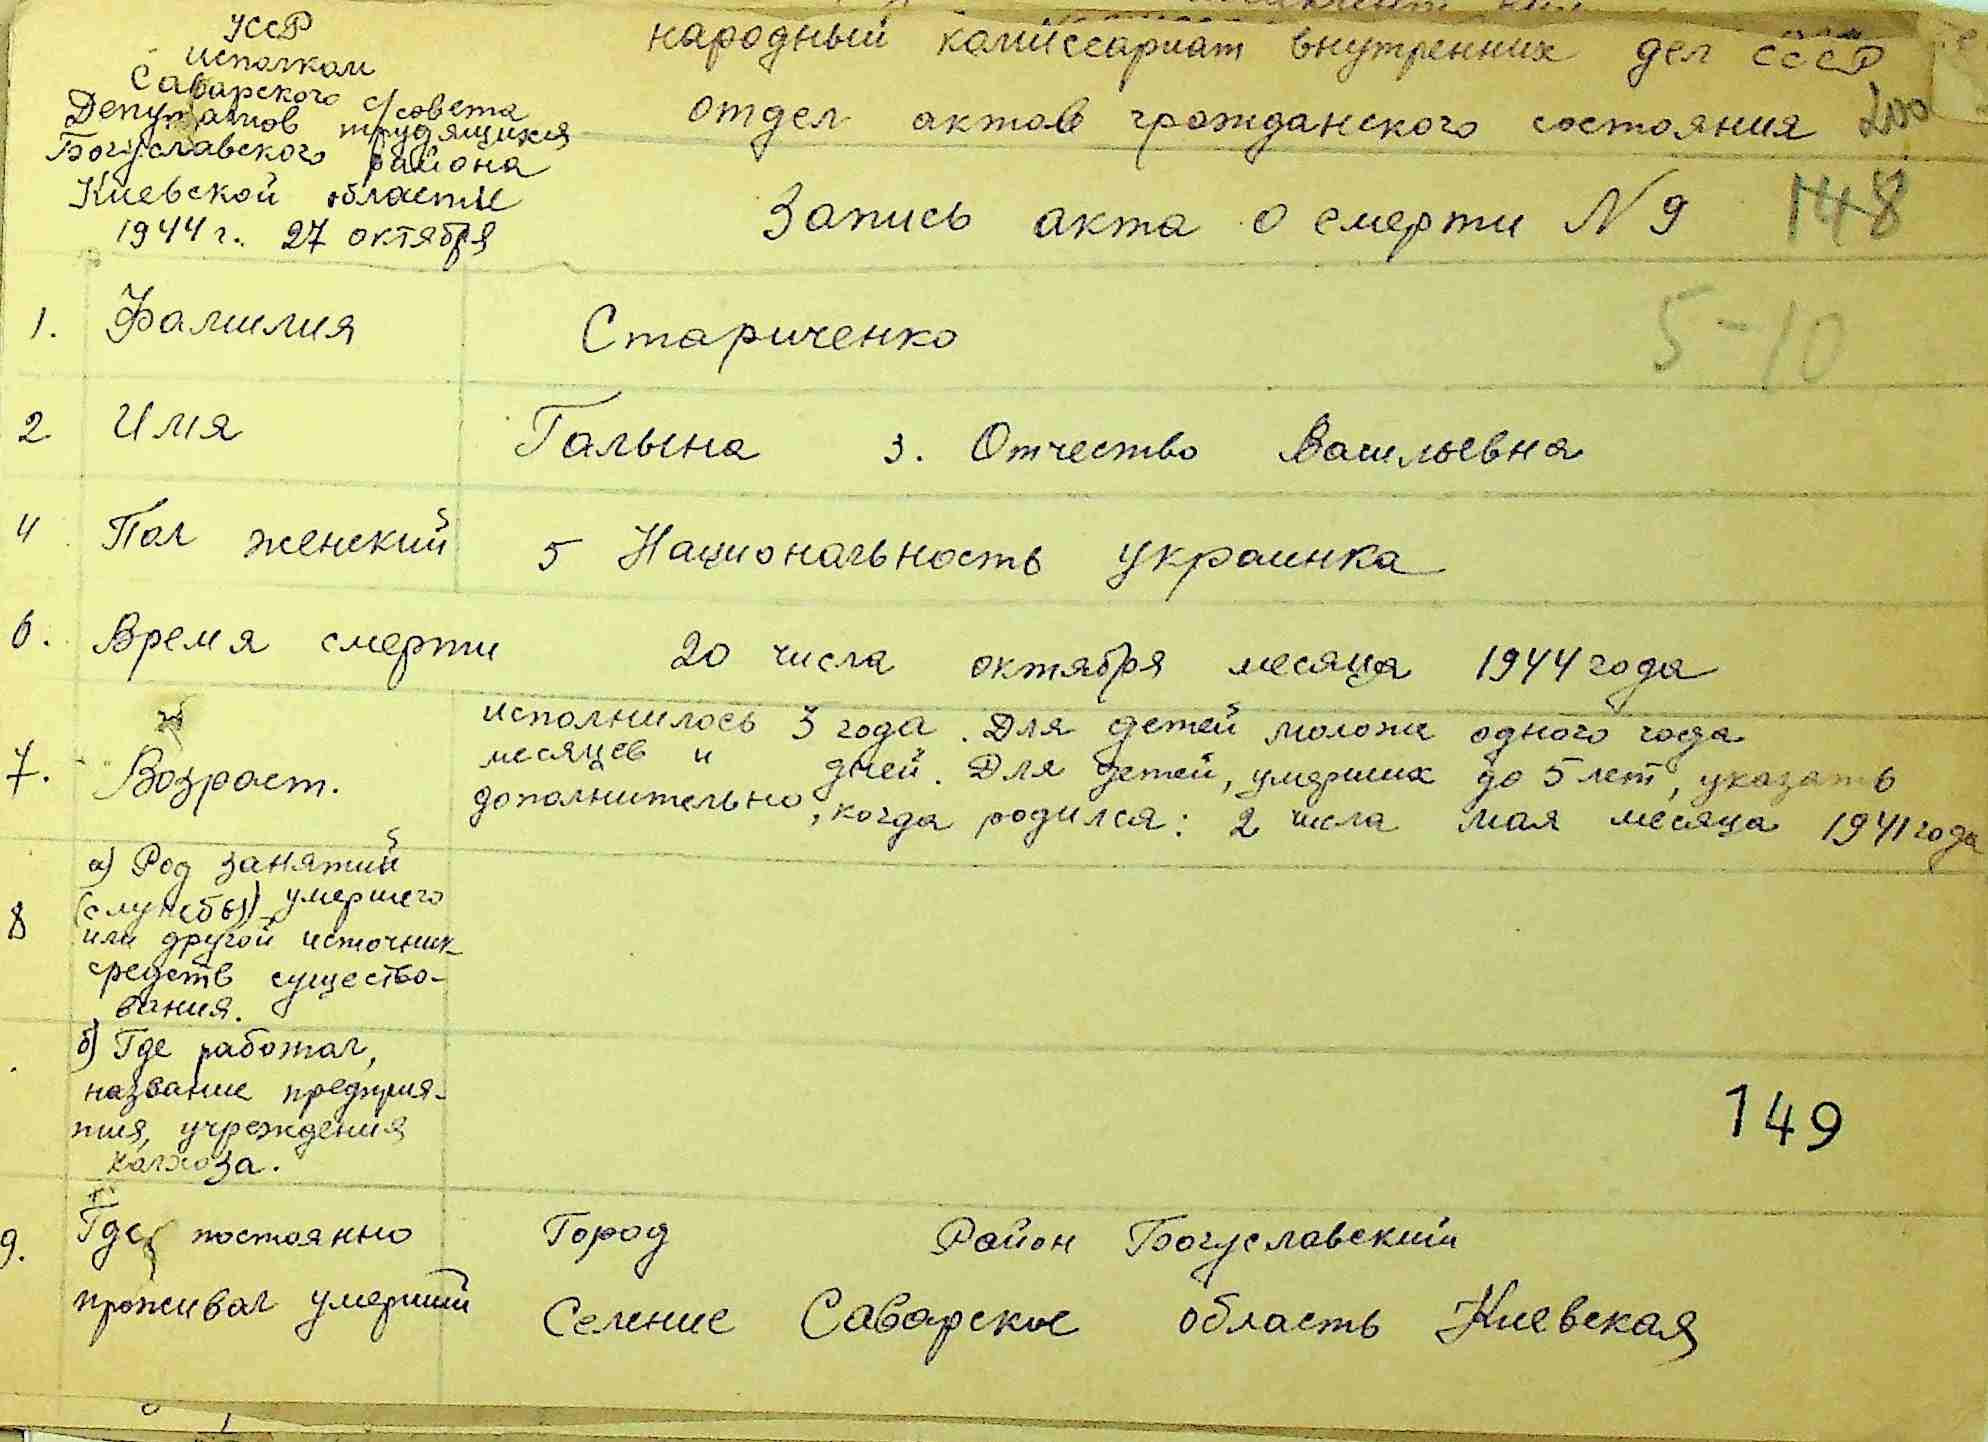 УССР
исполком
Саварского с/совета
Депутатов трудящихся
Богуславского района
Киевской области
1944 г. 27 октября
народный комиссариат внутренних дел СССР
отдел актов гражданского состояния 200
Запись акта о смерти N 9 148
1. Фамилия Стариченко 5-10
2 Имя Галына 3. Отчество Васильевна
4 Пол женский 5 Национальность украинка
6. Время смерти 20 числа октября месяца 1944 года
7. Возраст. исполнилось 3 года. Для детей моложе одного года
месяцев и дней. Для детей, умерших до 5 лет, указать
дополнительно, когда родился: 2 числа мая месяца 1941 года
8 а) Род занятий
(службы) умершего
или другой источник
средств существо-
вания.
б) Где работал,
название предприя-
тия, учреждения
колхоза.
149
9. Где постоянно Город Район Богуславский
проживал умерший Селение Саварское область Киевская